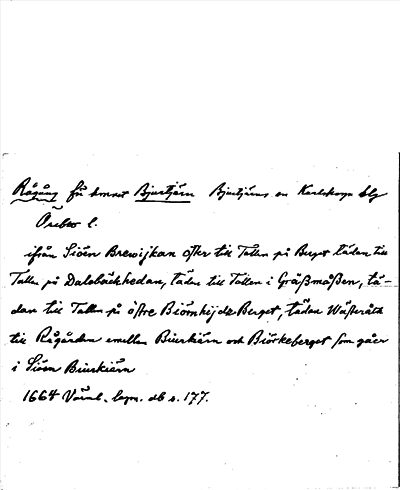 Rågång för hemmet Bjurtjärn Bjurtjärns sn Karlskoga blg
Örebro l.
ifrån Siön Brewijkan öster till Tallen på Berget täden till
Tallen på Dalebäckhedan, täden till Tallen i Gräßmåßen, tä-
dan till Tallen på östre Biörnhijdz Berget, täden Wästerått
till Rågården emellan Biurkiärn och Biörkeberget som gåer
i Siön Biurkiärn
1664 Värml. lagm. db s. 177.